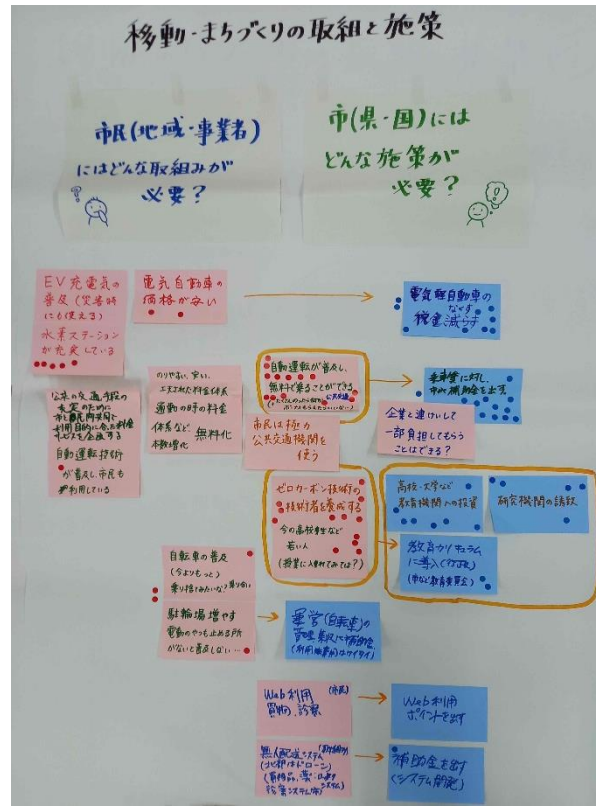 移動・まちづくりの取組と施策
市民(地域・事業者)
にはどんな取組みが
必要？
市(県・国)には
どんな施策が
必要？
EV充電気の
普及(災害時
にも使える)
水素ステーション
が充実している
電気自動車の
価格が安い
電気軽自動車の
税金減らす
公共の交通手段の
利用目的に合った料金
サービスを企画する
自動運転技術
が普及し、市民も
利用している
のりやすい、安い、
工夫された料金体系
通勤の時の料金
体系など 無料化
本数増加
自動運転が普及し、
無料で乗ることができる
公共交通
市民は極力
公共交通機関を
使う
企業と連けいして
一部負担してもらう
ことはできる？
ゼロカーボン技術の
技術者を養成する
今の高校生など
若い人
(授業に入れてみては？)
高校・大学など
教育機関への投資
研究機関の誘致
教育カリキュラム
に導入(行政)
(市など教育委員会)
自転車の普及
(今よりもっと)
駐輪場増やす
電動のやつも止める所
がないと普及しない…
運営(自転車)の
Web利用 (市民)
買物、診察
Web利用
ポイントを出す
無人配送システム
補助金を出す
(システム開発)